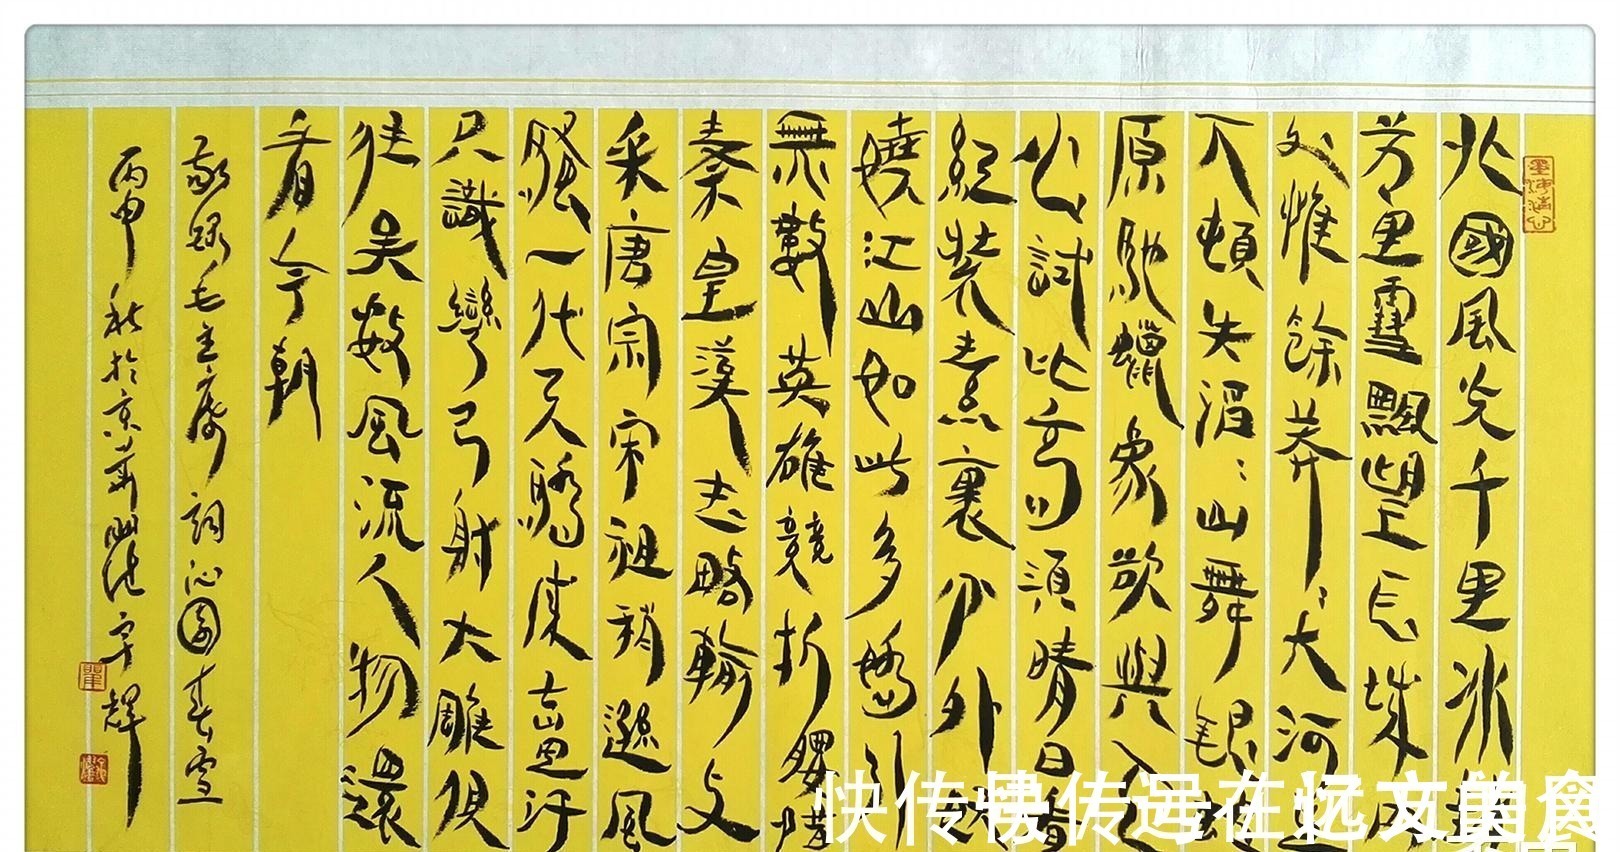 北國風光千里冰封
萬里雪飄望長城内
外惟餘莽〻大河上
下頓失滔〻山舞銀蛇
原馳蠟象欲與天
公試比高須晴日看
紅裝素裹分外妖
嬈江山如此多嬌引
無數英雄競折腰惜
秦皇漢武略輸文
采唐宗宋祖稍遜風
騷一代天驕成吉思汗
只識彎弓射大雕俱
往矣數風流人物還
看今朝
敬錄毛主席詞沁園春雪
丙申秋於京華
快传